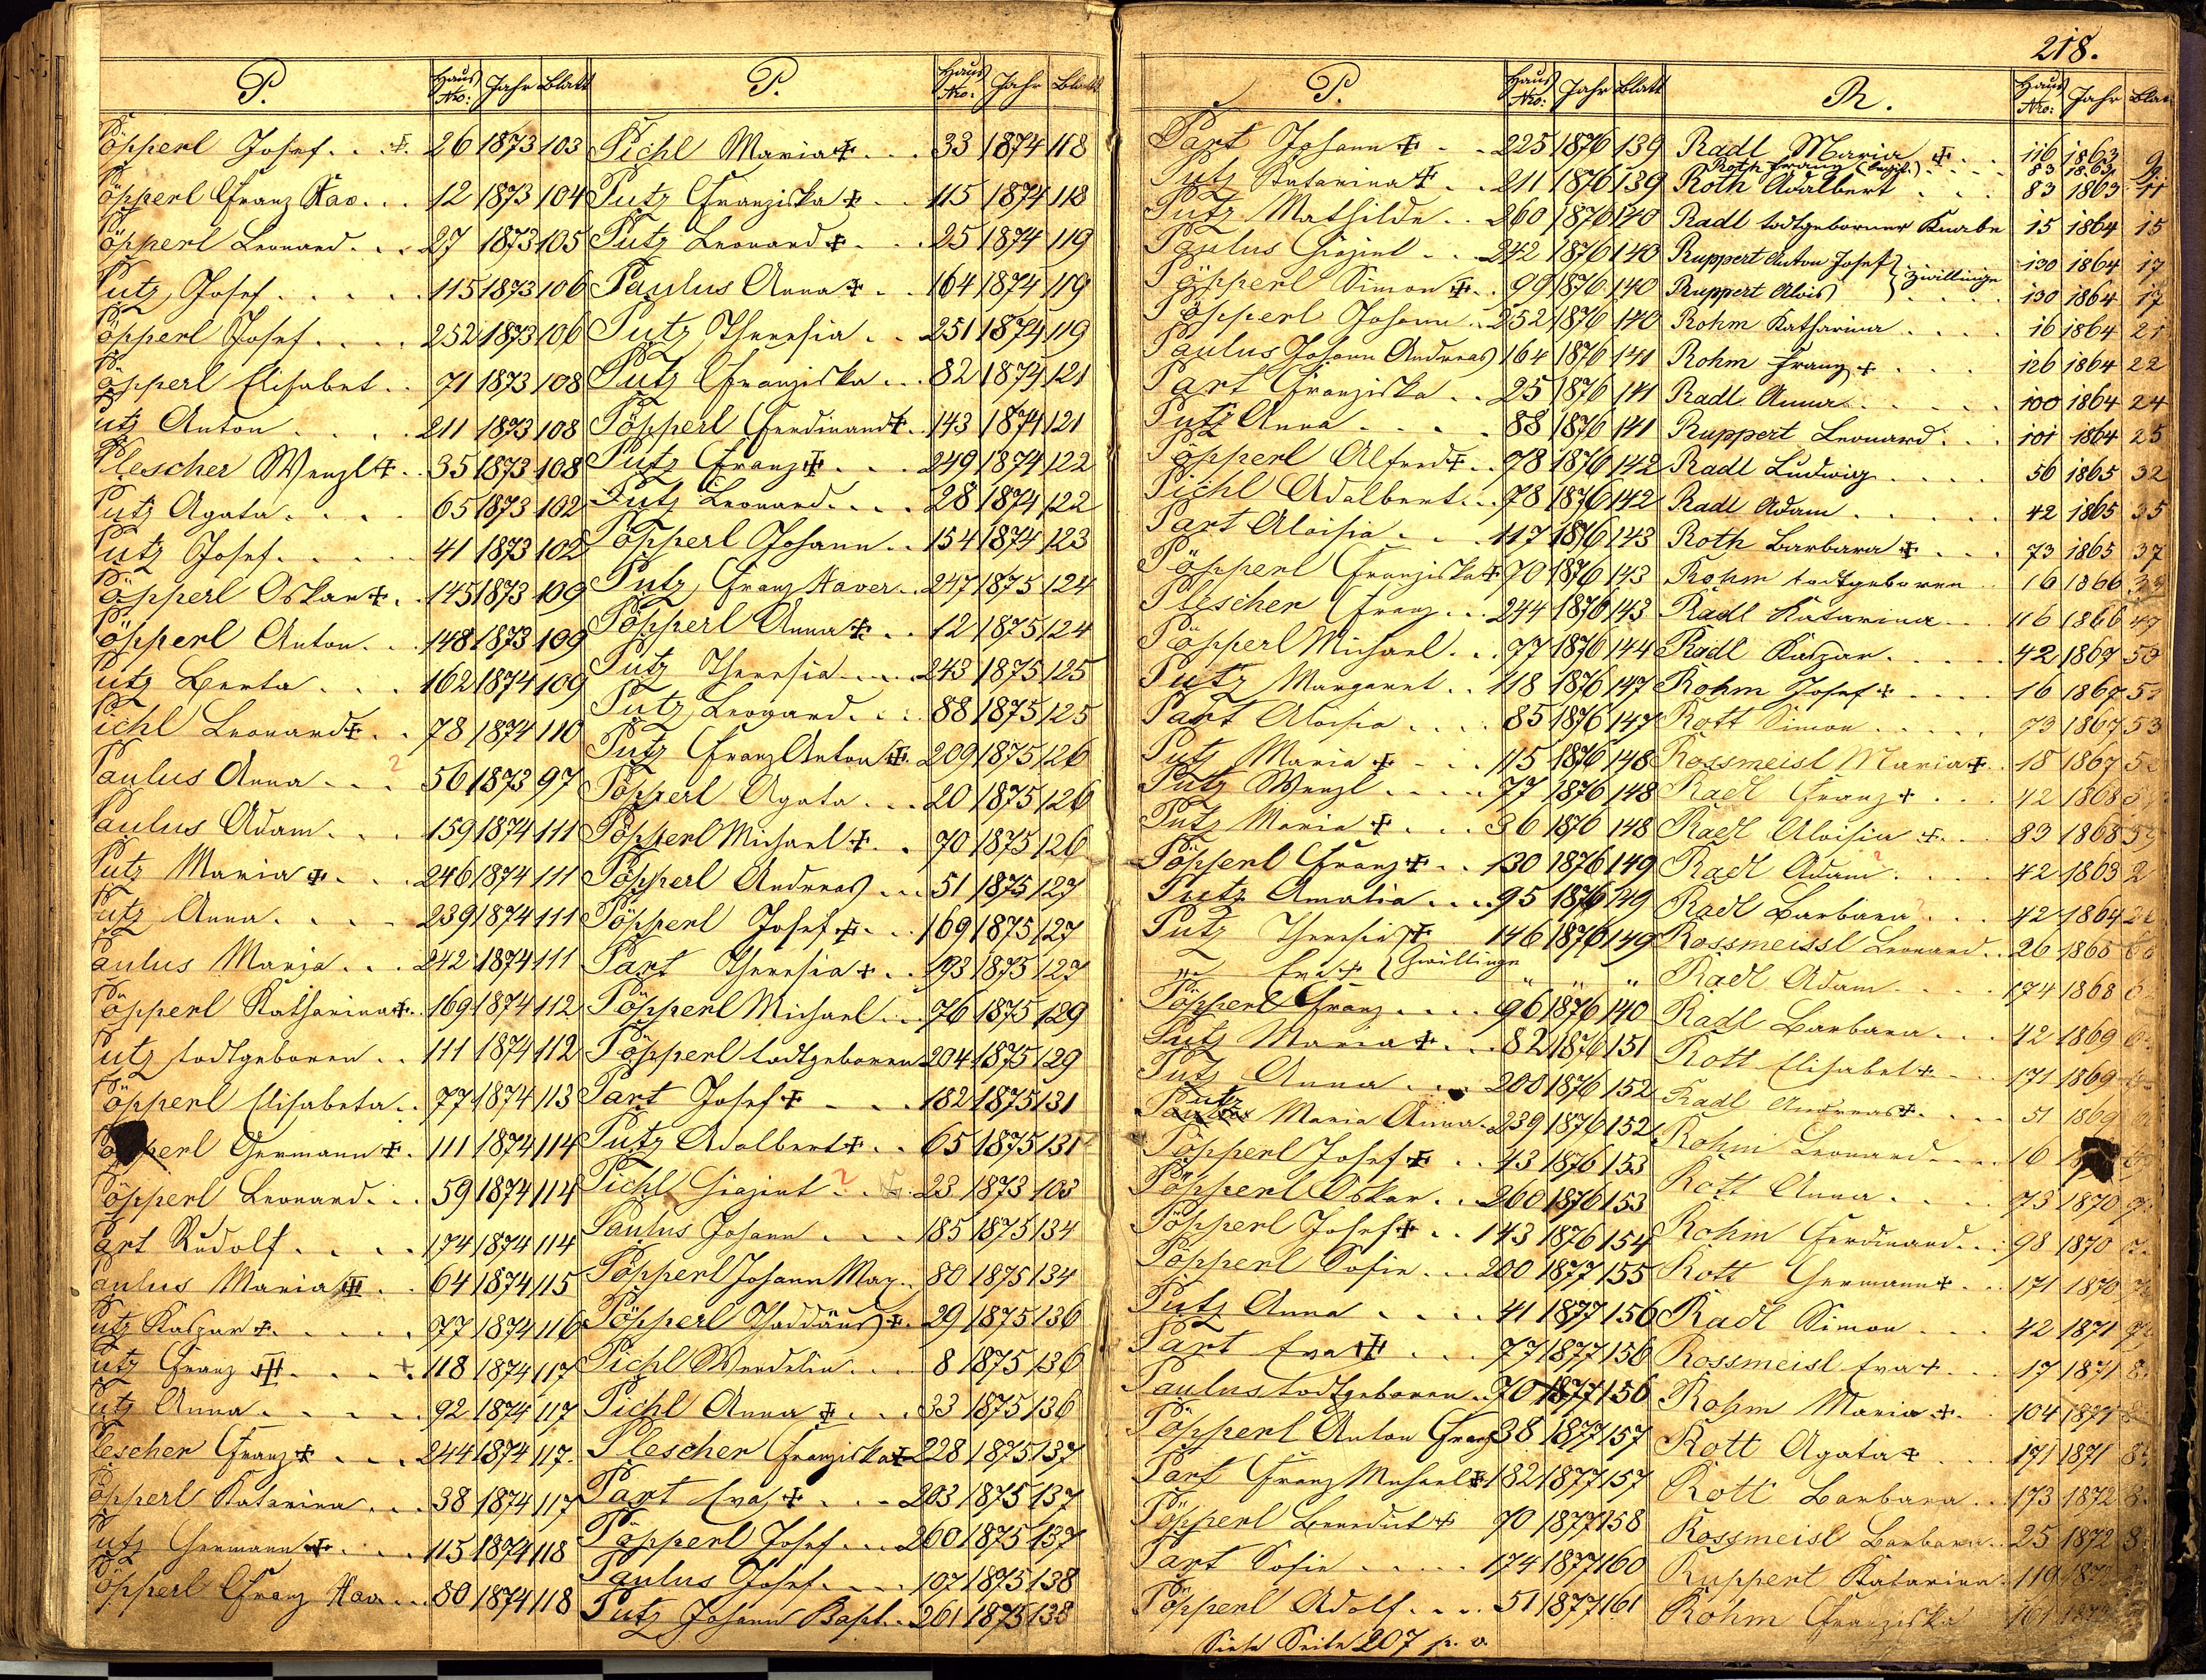 218.
P. Haus Nro: Jahr Blatt
Pöpperl Josef . . . 26 1873 103
Pöpperl Franz Xav. . . 12 1873 104
Pöpperl Leonard . . . 27 1873 105
Putz Josef . . . . 115 1873 106
Pöpperl Josef . . . . 252 1873 106
Pöpperl Elisabet . . 71 1873 108
Putz Anton . . . . 211 1873 108
Plescher Wenzl ✝ . . 35 1873 108
Putz Agata . . . . 65 1873 102
Putz Josef . . . . 41 1873 102
Pöpperl Oskar ✝ . . 145 1873 109
Pöpperl Anton . . . 148 1873 109
Putz Berta . . . . 162 1874 109
Pichl Leonard ✝ . . 78 1874 110
Paulus Anna . . . ? 56 1873 97
Paulus Adam . . . 159 1874 111
Putz Maria ✝ . . . 246 1874 111
Putz Anna . . . . 239 1874 111
Paulus Maria . . . 242 1874 111
Pöpperl Katharina ✝ . 169 1874 112
Putz todtgeboren . . 111 1874 112
Pöpperl Elisabeta . . 77 1874 113
Pöpperl Germann ✝ . 111 1874 114
Pöpperl Leonard . . . 59 1874 114
Part Rudolf . . . . 174 1874 114
Paulus Maria ✝ . . 64 1874 115
Putz Kaspar ✝ . . . . 77 1874 116
Putz Franz ✝ . . . . 118 1874 117
Putz Anna . . . . . 92 1874 117
Plescher Franz ✝ . . . 244 1874 117.
Pöpperl Katarina . . . 38 1874 117
Putz Germann ✝ . . . 115 1874 118
Pöpperl Franz Xav . . . 80 1874 118
P. Haus Nro. Jahr Blatt
Pichl Maria ✝ . . . 33 1874 118
Putz Franziska ✝ . . 115 1874 118
Putz Leonard ✝ . . . 25 1874 119
Paulus Anna ✝ . . 164 1874 119
Putz Theresia . . 251 1874 119
Putz Franziska . . . 82 1874 121
Pöpperl Ferdinand ✝ . 143 1874 121
Putz Franz ✝ . . . 249 1874 122
Putz Leonard . . . . 28 1874 122
Pöpperl Johann . . 154 1874 123
Putz Franz Xaver . . 247 1875 124
Pöpperl Anna ✝ . . 12 1875 124
Putz Theresia . . . . 243 1875 125
Putz Leonard . . . 88 1875 125
Putz Franz Anton ✝ . 209 1875 126
Pöpperl Agata . . . 20 1875 126
Pöpperl Michael ✝ . . 70 1875 126
Pöpperl Andreas . . . 51 1875 127
Pöpperl Josef ✝ . . 169 1875 127
Part Theresia ✝ . . 193 1875 127
Pöpperl Michael . . . 76 1875 129
Pöpperl todtgeboren 204 1875 129
Part Josef ✝ . . . 182 1875 131
Putz Adalbert ✝ . . 65 1875 131
Pichl Hiazint . . ? 23 1873 103
Paulus Johann . . . 185 1875 134
Pöpperl Johann Max . . 80 1875 134
Pöpperl Thaddäus ✝ . 29 1875 136
Pichl Wendelin . . . 8 1875 136
Pichl Anna ✝ . . . 33 1875 136
Plescher Franziska ✝ 228 1875 137
Part Eva ✝ . . . 203 1875 137
Pöpperl Josef . . . 260 1875 137
Paulus Josef . . . . 107 1875 138
Putz Johann Bapt. . . 261 1875 138
P. Haus Nro: Jahr Blatt
Part Johann ✝ . . 225 1876 139
Putz Katarina ✝ . . 211 1876 139
Putz Mathilde . . 260 1876 140
Paulus Hiazint . . . 242 1876 140
Pöpperl Simon ✝ . . 99 1876 140
Pöpperl Johann . . 252 1876 140
Paulus Johann Andreas 164 1876 141
Part Franziska . . 25 1876 141
Putz Anna . . . . 88 1876 141
Pöpperl Alfred ✝ . . 78 1876 142
Pichl Adalbert . . . 78 1876 142
Part Aloisia . . . 117 1876 143
Pöpperl Franziska ✝ 70 1876 143
Plescher Franz . . . 244 1876 143
Pöpperl Michael . . . 77 1876 144
Putz Margaret . . 118 1876 147
Part Aloisia . . . . 85 1876 147
Putz Maria ✝ . . . 115 1876 148
Putz Wenzl . . . . . 77 1876 148
Putz Maria ✝ . . . 36 1876 148
Pöpperl Franz ✝ . . 130 1876 149
Putz Amalia . . . . 95 1876 149
Putz Theresia ✝ 146 1876 149
" Eva ✝ } Zwillinge " " "
Pöpperl Franz . . . . 96 1876 140
Putz Maria ✝ . . . 82 1876 151
Putz Anna . . . 200 1876 152
Putz Maria Anna . 239 1876 152
Pöpperl Josef ✝ . . 43 1876 153
Pöpperl Oskar . . 260 1876 153
Pöpperl Josef ✝ . . 143 1876 154
Pöpperl Sofie . . . 200 1877 155
Putz Anna . . . . 41 1877 156
Part Eva ✝ . . . 77 1877 156
Paulus todtgeboren . . 70 1877 156
Pöpperl Anton Franz 38 1877 157
Part Franz Michael ✝ 182 1877 157
Pöpperl Benedict ✝ 70 1877 158
Part Sofie . . . . . 174 1877 160
Pöpperl Adolf . . . . 51 1877 161
Siehe Seite 207 p. v.
R. Haus Nro: Jahr Blatt
Radl Maria ✝ . . 116 1863 9
Roth Franz . . . . 83 1863
Roth Adalbert . . 83 1863 11
Radl todtgeborner Knabe 15 1864 15
Ruppert Anton Josef } Zwillinge 130 1864 17
Ruppert Alois } . . . . 130 1864 17
Rohm Katharina . . . . 16 1864 21
Rohm Franz ✝ . . . 126 1864 22
Radl Anna . . . . . 100 1864 24
Ruppert Leonard . . . 101 1864 25
Radl Ludwig . . . . 56 1865 32
Radl Adam . . . . . 42 1865 35
Roth Barbara ✝ . . . 73 1865 37
Rohm todtgeboren . . 16 1866
Radl Katarina . . . 116 1866 47
Radl Kaspar . . . . . 42 1867 50
Rohm Josef ✝ . . . . 16 1867
Rott Simon . . . . . 73 1867 53
Rossmeisl Maria ✝ . . 18 1867
Radl Franz ✝ . . . 42 1868
Radl Aloisia ✝ . . . 83 1868
Radl Adam ? . . . 42 1863 2
Radl Barbara ? . . . 42 1864
Rossmeissl Leonard . . 26 1868
Radl Adam . . . . 174 1868
Radl Barbara . . . 42 1869
Rott Elisabet ✝ . . . 171 1869
Radl Andreas ✝ . . . . 51 1869
Rohm Leonard . . . . 16
Rott Anna . . . . 73 1870
Rohm Ferdinand . . . 98 1870
Rott Germann ✝ . . . 171 1870
Radl Simon . . . 42 1871
Rossmeisl Eva ✝ . . . 17 1871
Rohm Maria ✝ . . 104 1871
Rott Agata ✝ . . . 171 1871
Rott Barbara . . . 173 1872
Rossmeisl Barbara . . 25 1872
Ruppert Katarina . 119
Rohm Franziska